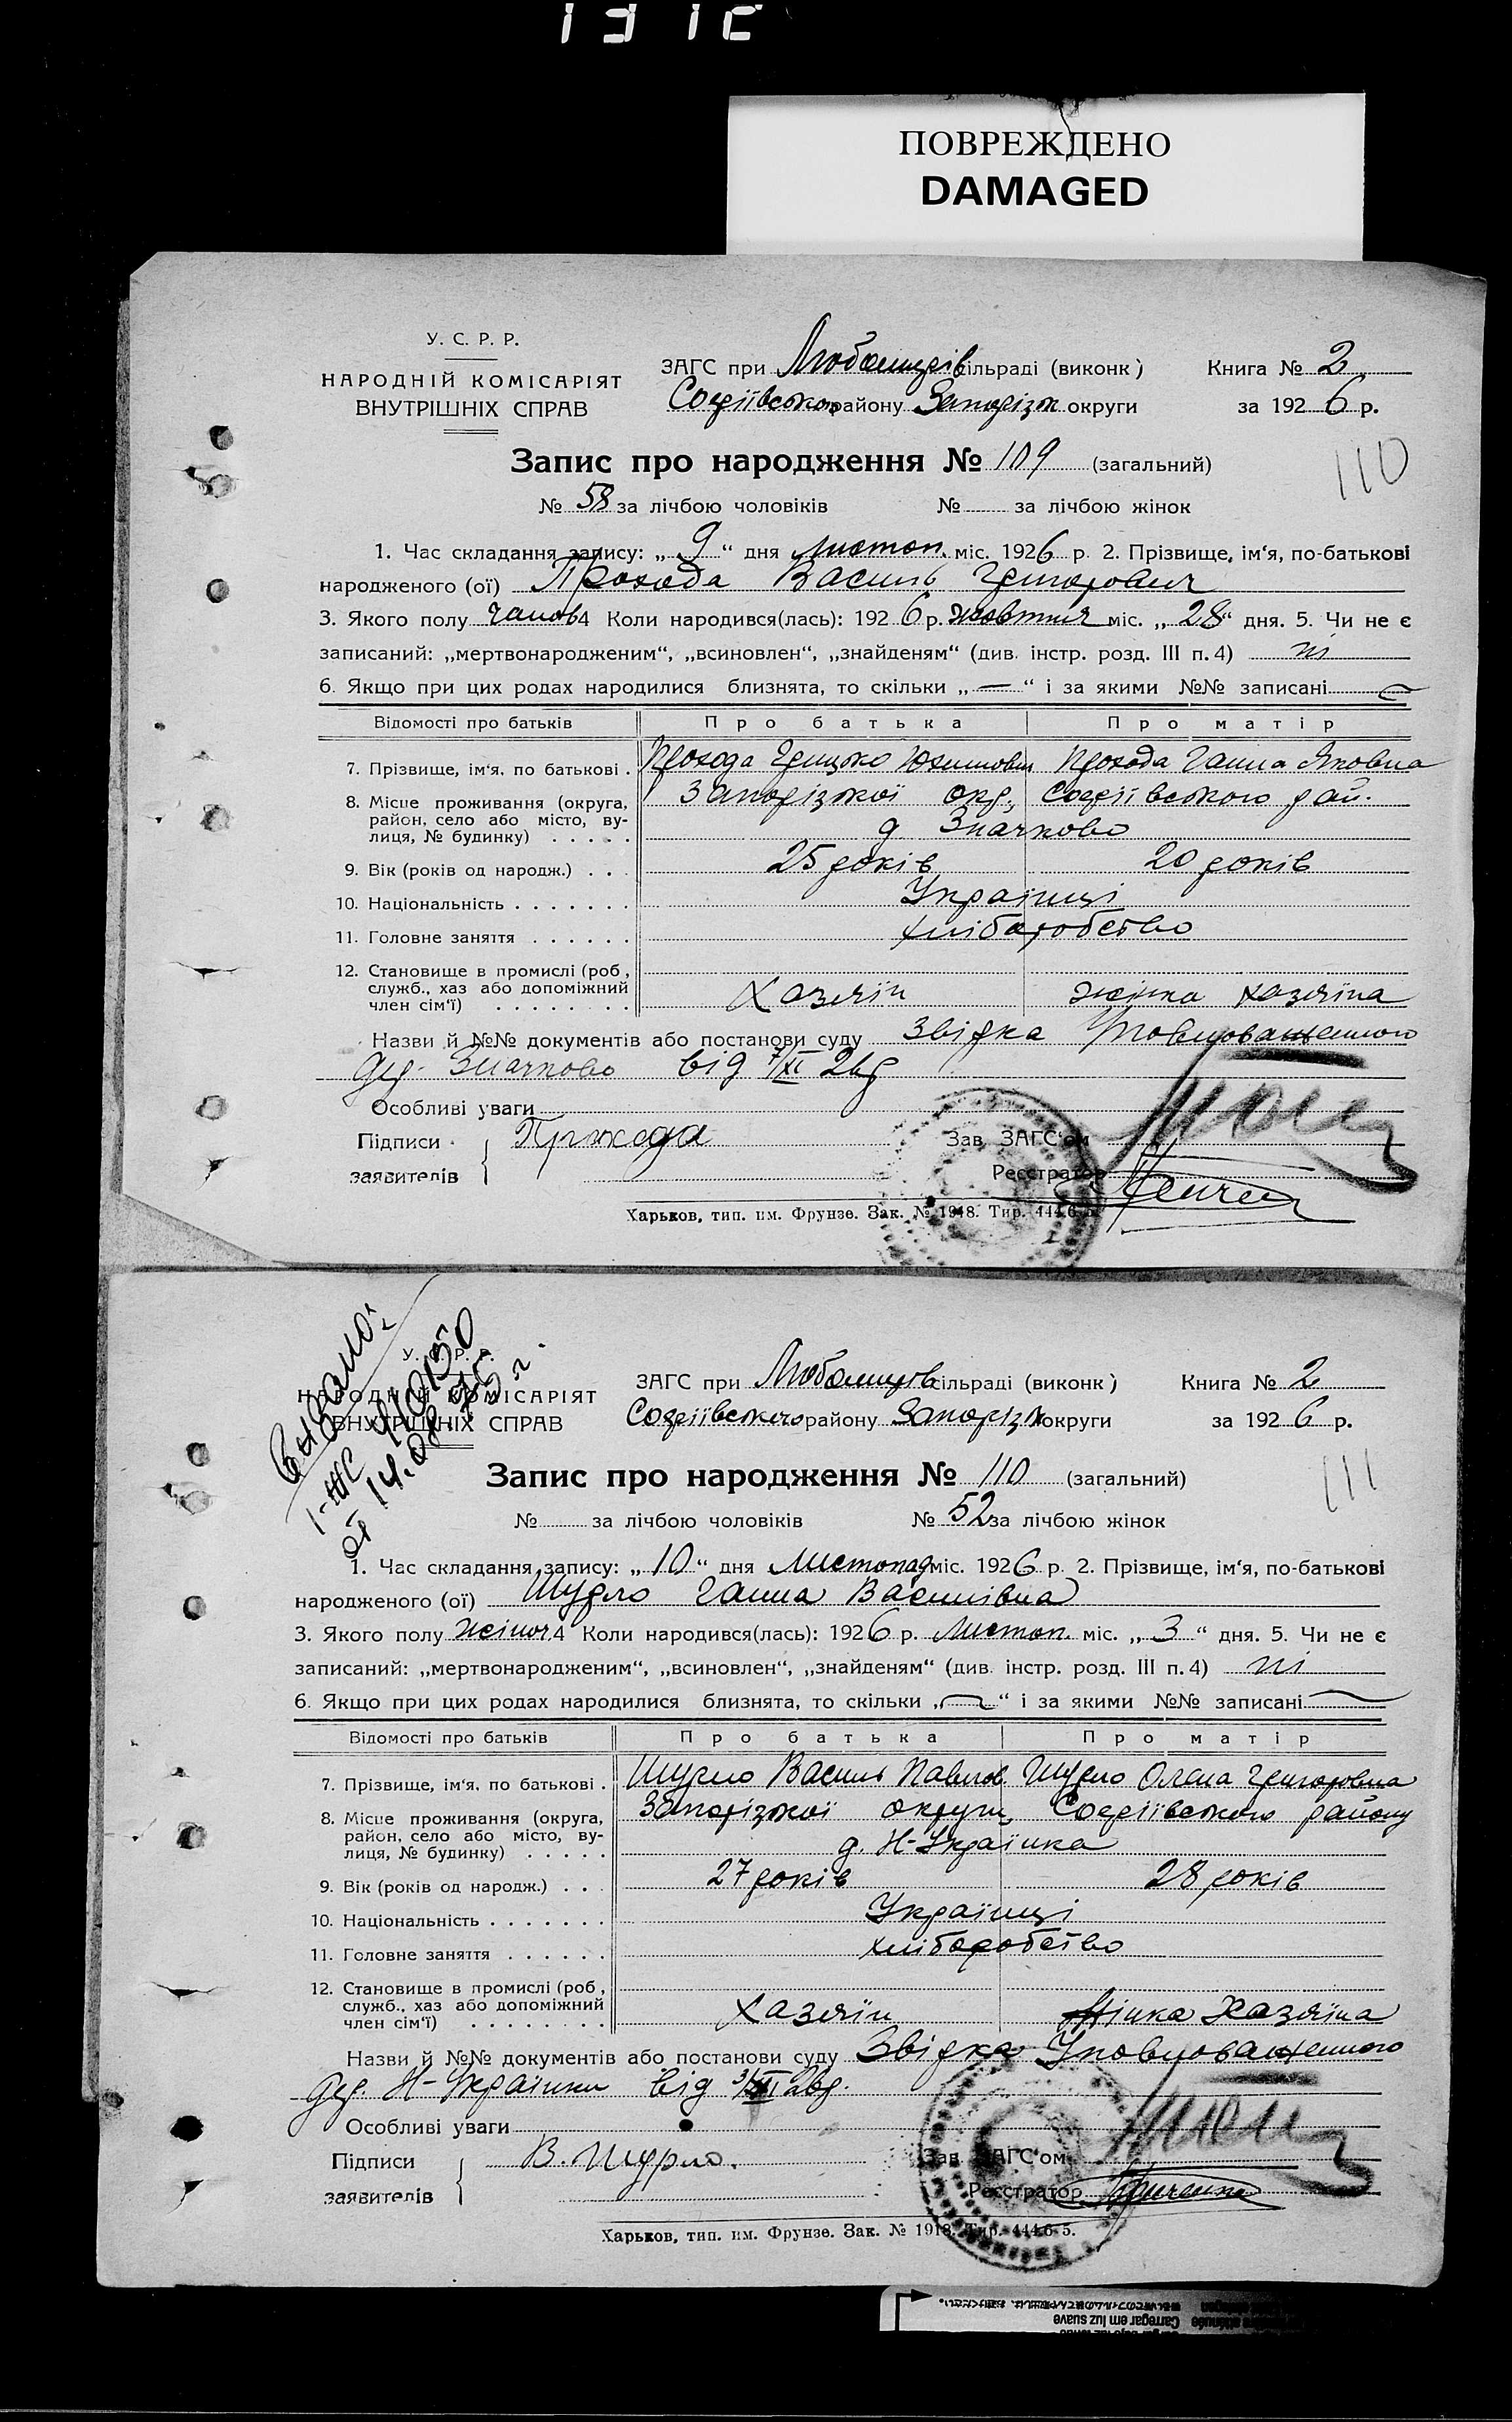 ПОВРЕЖДЕНО
DAMAGED
У. С. Р. Р.
НАРОДНІЙ КОМІСАРІЯТ
ВНУТРІШНІХ СПРАВ
ЗАГС при Любомирів сільраді (виконк)
Софіївського району Запоріж округи
Книга № 2
за 1926 р.
Запис про народження № 109 (загальний)
110
№ 58 за лічбою чоловіків № за лічбою жінок
1. Час складання запису: „ 9 “ дня листоп. міс. 1926 р. 2. Прізвище, ім‘я, по-батькові
народженого (ої) Прохода Василь Григорович
3. Якого полу чолов 4 Коли народився(лась): 1926 р. жовтня міс. „ 28 “ дня. 5. Чи не є
записаний: „мертвонародженим“, „всиновлен“, „знайденям“ (див. інстр. розд. III п. 4) ні
6. Якщо при цих родах народилися близнята, то скільки „ — “ і за якими №№ записані —
Відомості про батьків Про батька Про матір
7. Прізвище, ім‘я, по батькові . Прохода Грицько Юхимович Прохода Ганна Яковна
8. Місце проживання (округа, район, село або місто, вулиця, № будинку) . . . . . Запоріжкої окр., Софіївського рай.
д Значково
9. Вік (років од народж.) . . . 25 років 20 років
10. Національність . . . . . . . Українці
11. Головне заняття . . . . . . хліборобство
12. Становище в промислі (роб, служб., хаз або допоміжний член сім‘ї) . . . . . . . . Хазяїн жінка хазяїна
Назви й №№ документів або постанови суду Звідка Уповноваженного
дер. Значково від 7/XI 26р
Особливі уваги
Підписи заявителів Прохода
Зав. ЗАГС‘ом
Реєстратор
Харьков, тип. им. Фрунзе. Зак. № 1918. Тир. 444.6-5.
Видано:
I-ЖС 410150
от 14.08.75 г.
У. С. Р. Р.
НАРОДНІЙ КОМІСАРІЯТ
ВНУТРІШНІХ СПРАВ
ЗАГС при Любомирів сільраді (виконк)
Софіївського району Запоріж округи
Книга № 2
за 1926 р.
Запис про народження № 110 (загальний)
111
№ за лічбою чоловіків № 52 за лічбою жінок
1. Час складання запису: „ 10 “ дня Листопад міс. 1926 р. 2. Прізвище, ім‘я, по-батькові
народженого (ої) Шурло Ганна Василівна
3. Якого полу жіноч. 4 Коли народився(лась): 1926 р. Листоп. міс. „ 3 “ дня. 5. Чи не є
записаний: „мертвонародженим“, „всиновлен“, „знайденям“ (див. інстр. розд. III п. 4) ні
6. Якщо при цих родах народилися близнята, то скільки „ — “ і за якими №№ записані —
Відомості про батьків Про батька Про матір
7. Прізвище, ім‘я, по батькові . Шурло Василь Павлов. Шурло Олена Григоровна
8. Місце проживання (округа, район, село або місто, вулиця, № будинку) . . . . . Запоріжкої округи, Софіївського району
д. Н-Українка
9. Вік (років од народж.) . . . 27 років 28 років
10. Національність . . . . . . . Українці
11. Головне заняття . . . . . . хліборобство
12. Становище в промислі (роб, служб., хаз або допоміжний член сім‘ї) . . . . . . . . Хазяїн Жінка Хазяїна
Назви й №№ документів або постанови суду Звідка Уповноваженного
дер. Н-Українки від 3/XI 26р.
Особливі уваги
Підписи заявителів В. Шурло.
Зав. ЗАГС‘ом
Реєстратор
Харьков, тип. им. Фрунзе. Зак. № 1918. Тир. 444.6-5.
Carregar em luz suave